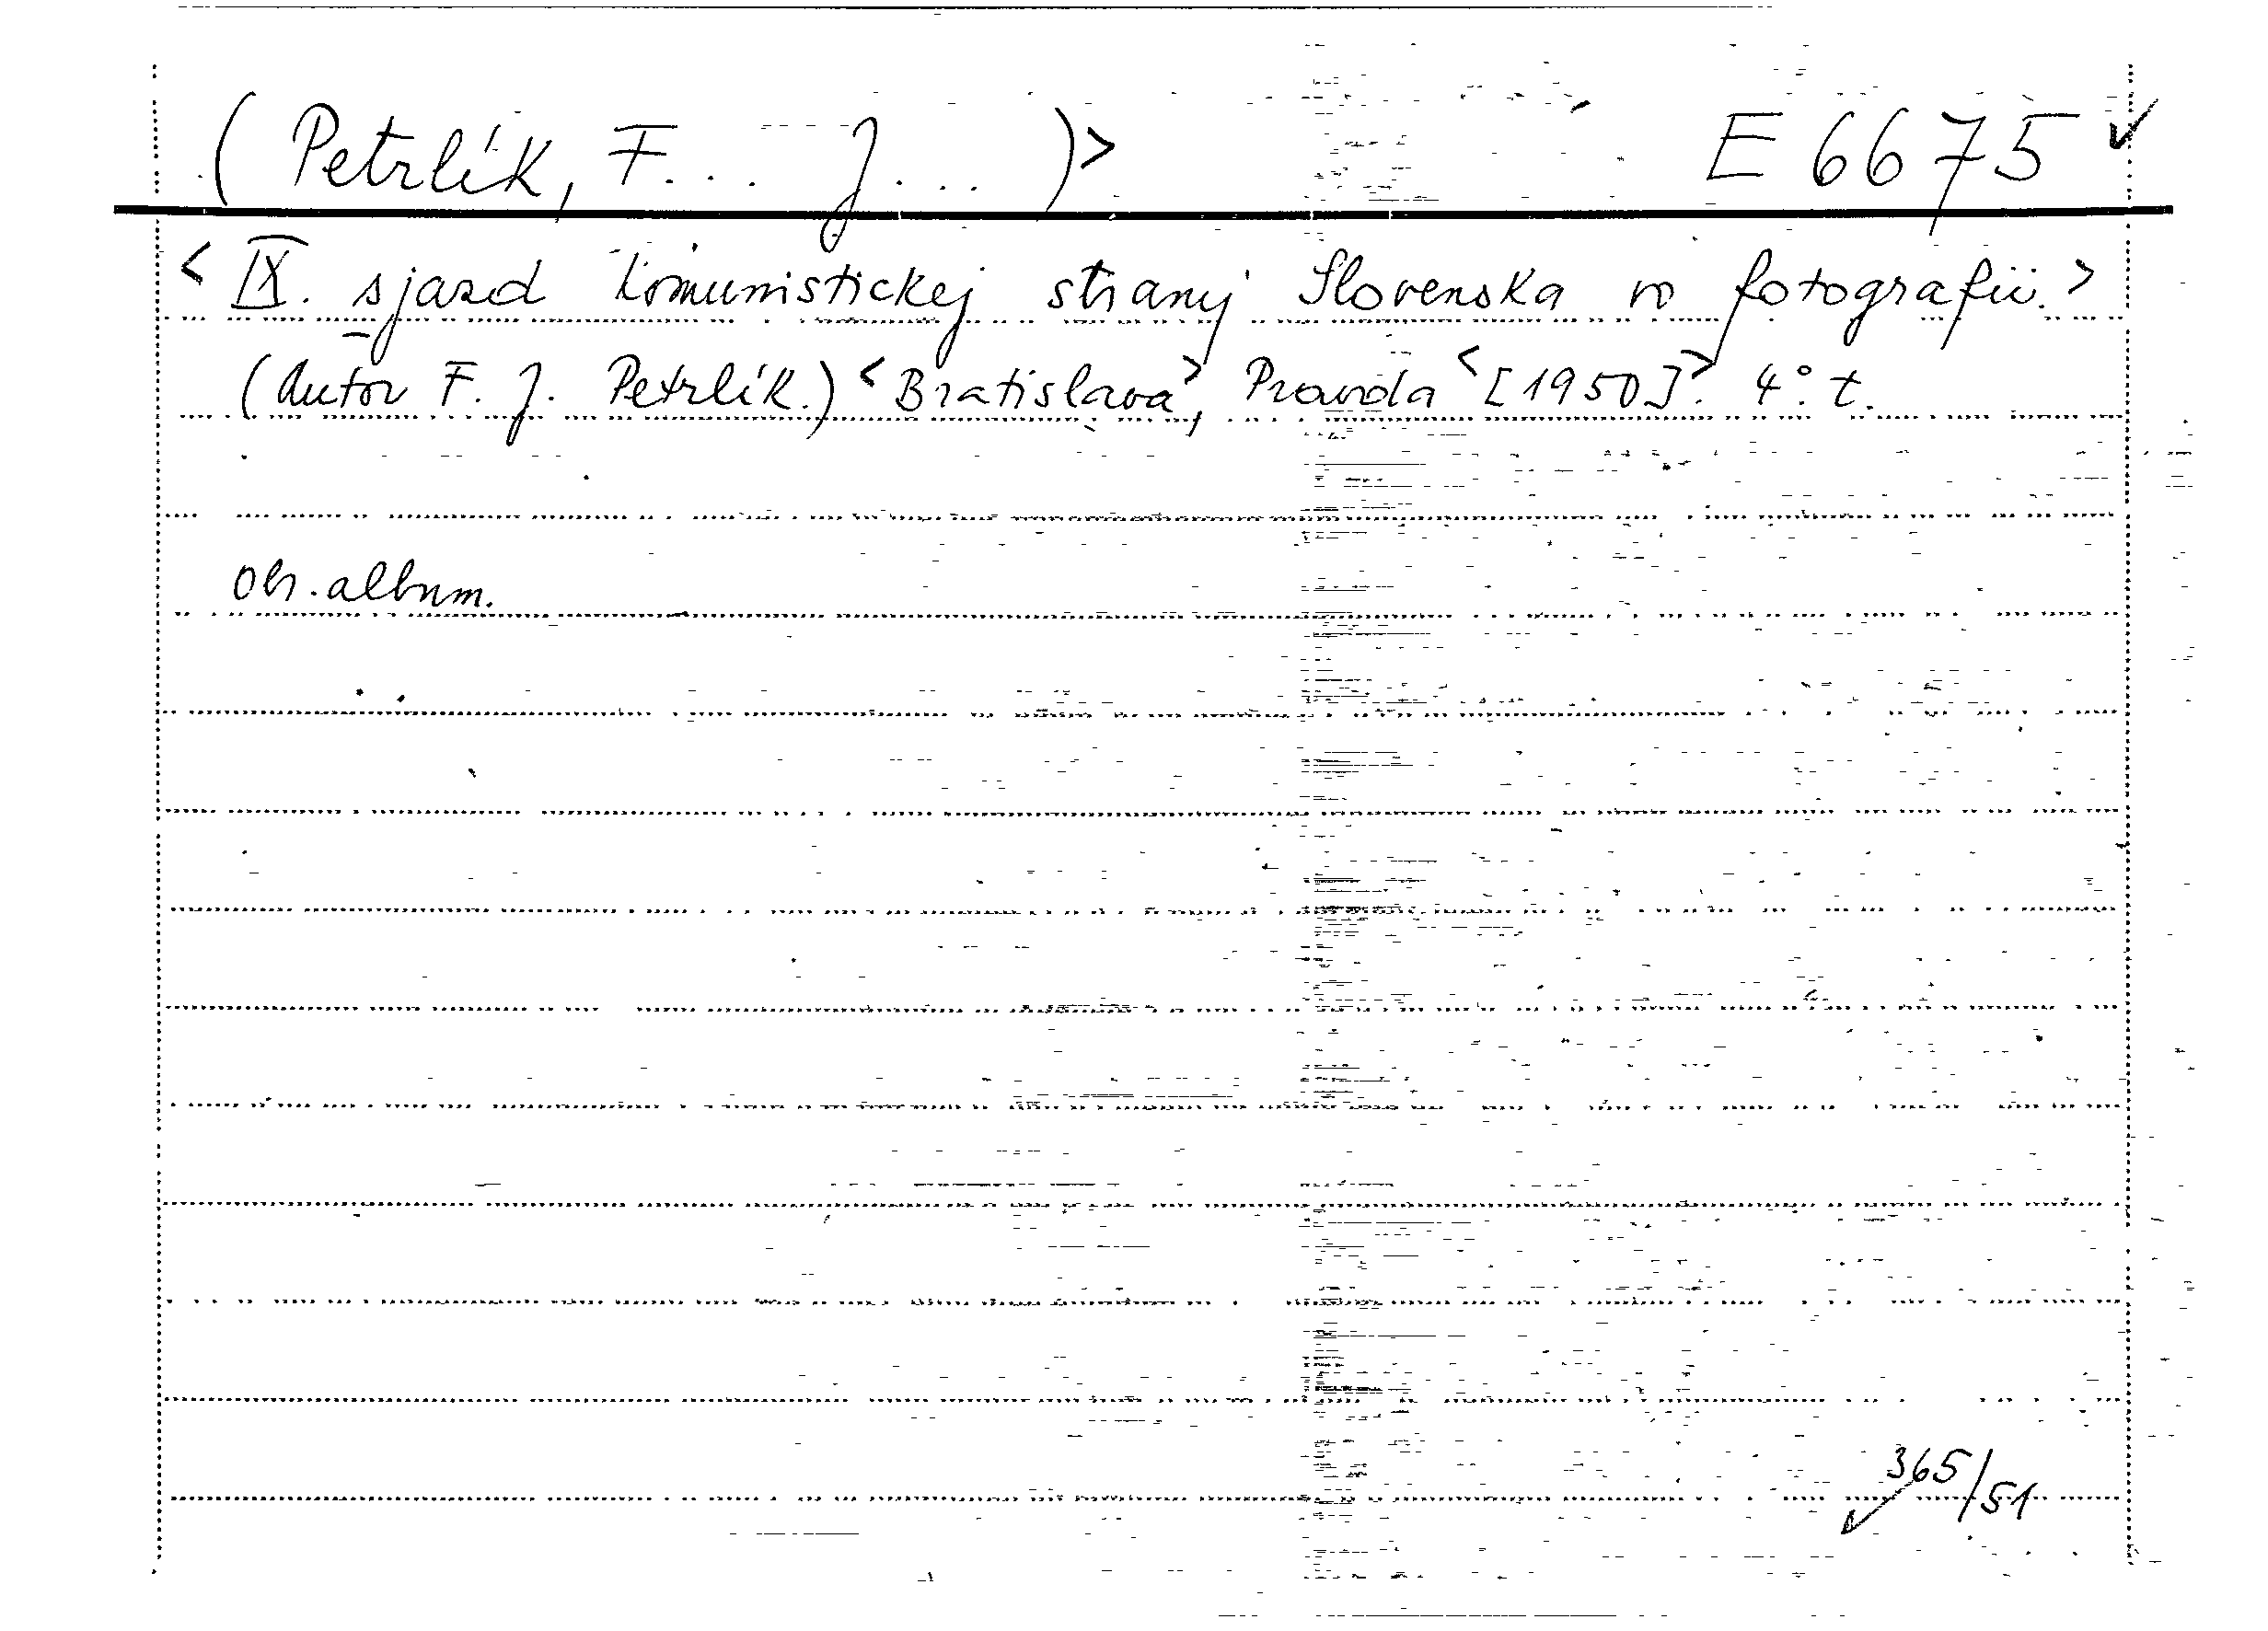 (Petrlík, F... J...)> E 6675 ✓
< IX. sjazd komunistickej strany Slovenska vo fotografii.>
(Autor F. J. Petrlík.) <Bratislava>, Pravda <[1950]>. 4°. t.
Obr. album.
✓ 365/51